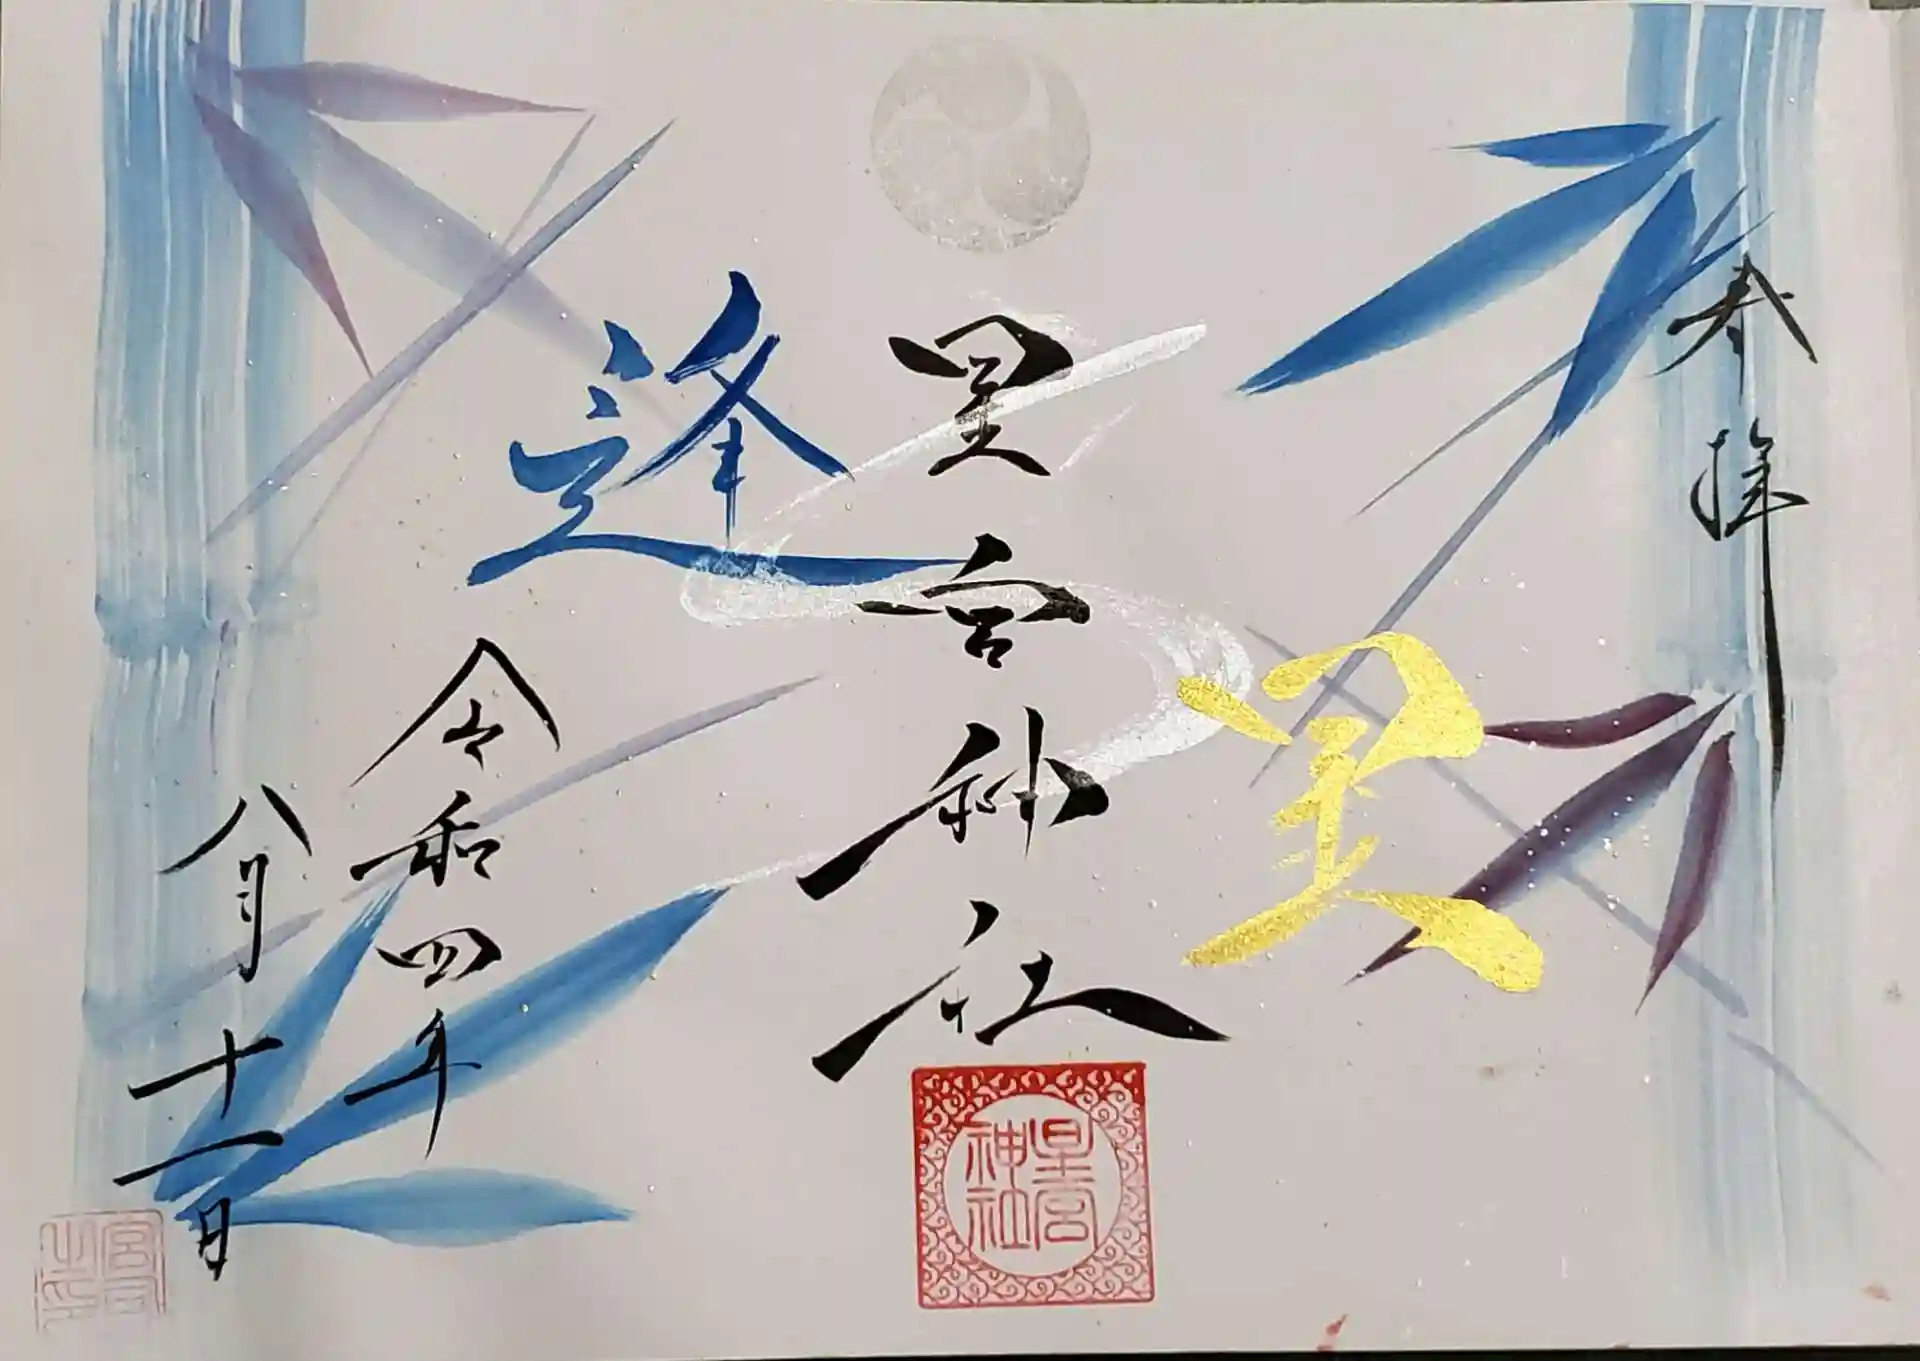 奉拝
星
星宮神社
星宮
神社
逢
令和四年
八月十一日
宮司
之印